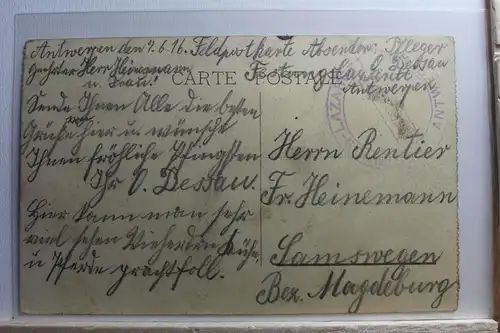 Antwerpen den 7.6.16. Feldpostkarte Absender: Pfleger
O. Dessau
Festungslazarett
Antwerpen
Geehrter Herr Heinemann
u. Frau!
CARTE POSTALE
Sende Ihnen Alle die besten
Grüße hier u wünsche
Ihnen fröhliche Pfingsten
Ihr O. Dessau.
Hier kann man sehr
viel sehen Viehherden Kühe
u Pferde prachtfoll.
Herrn Rentier
Fr. Heinemann
Samswegen
Bez. Magdeburg